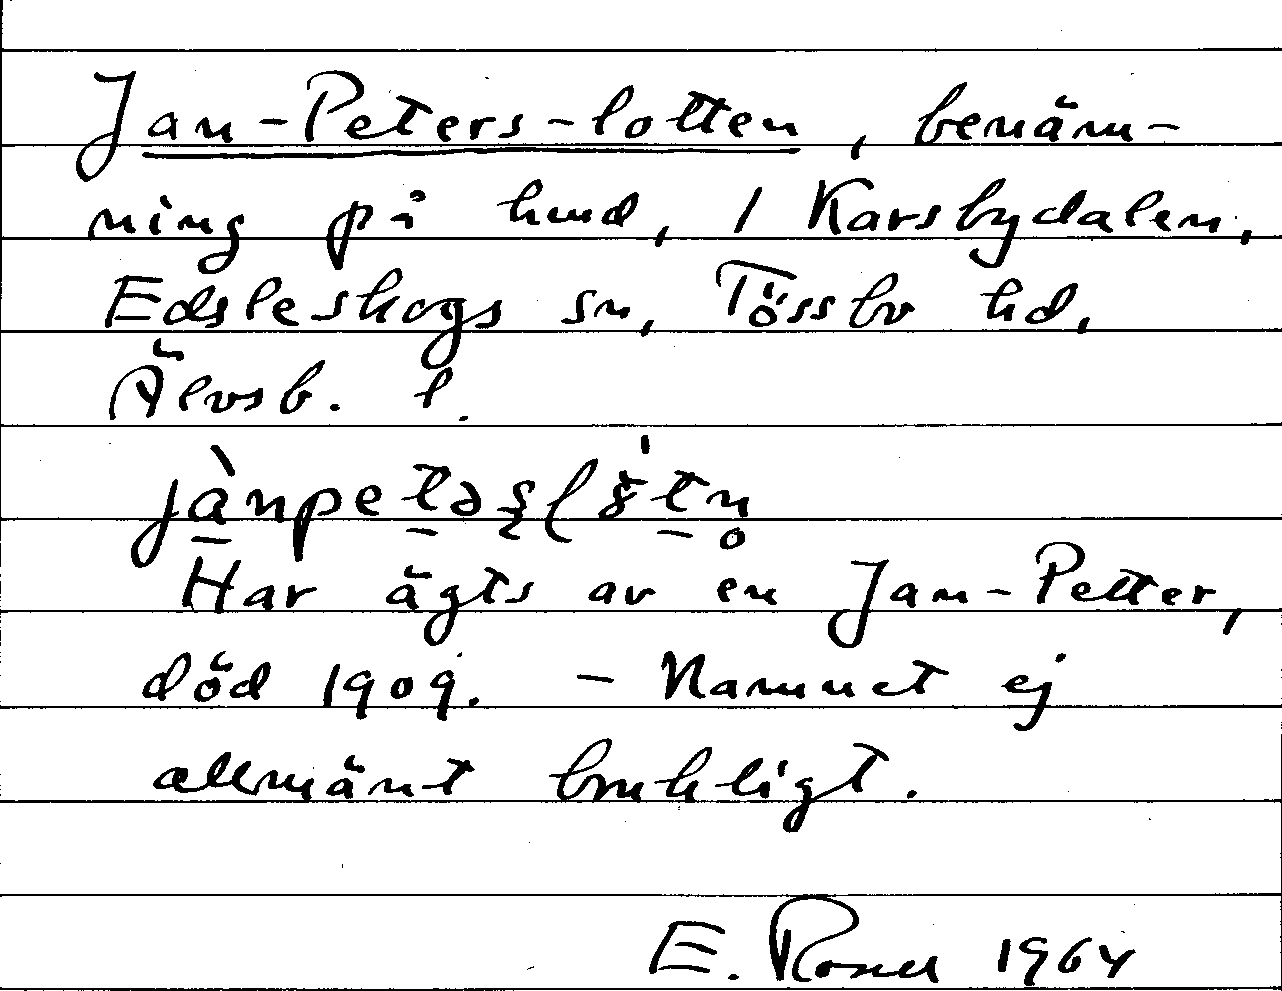 Jan-Peters-lotten, benäm-
ning på hmd, 1 Karsbydalen,
Edsleskogs sn, Tössbo hd,
Älvsb. l.
Har ägts av en Jan-Petter,
död 1909. - Namnet ej
allmänt brukligt.
E. Rosell 1964